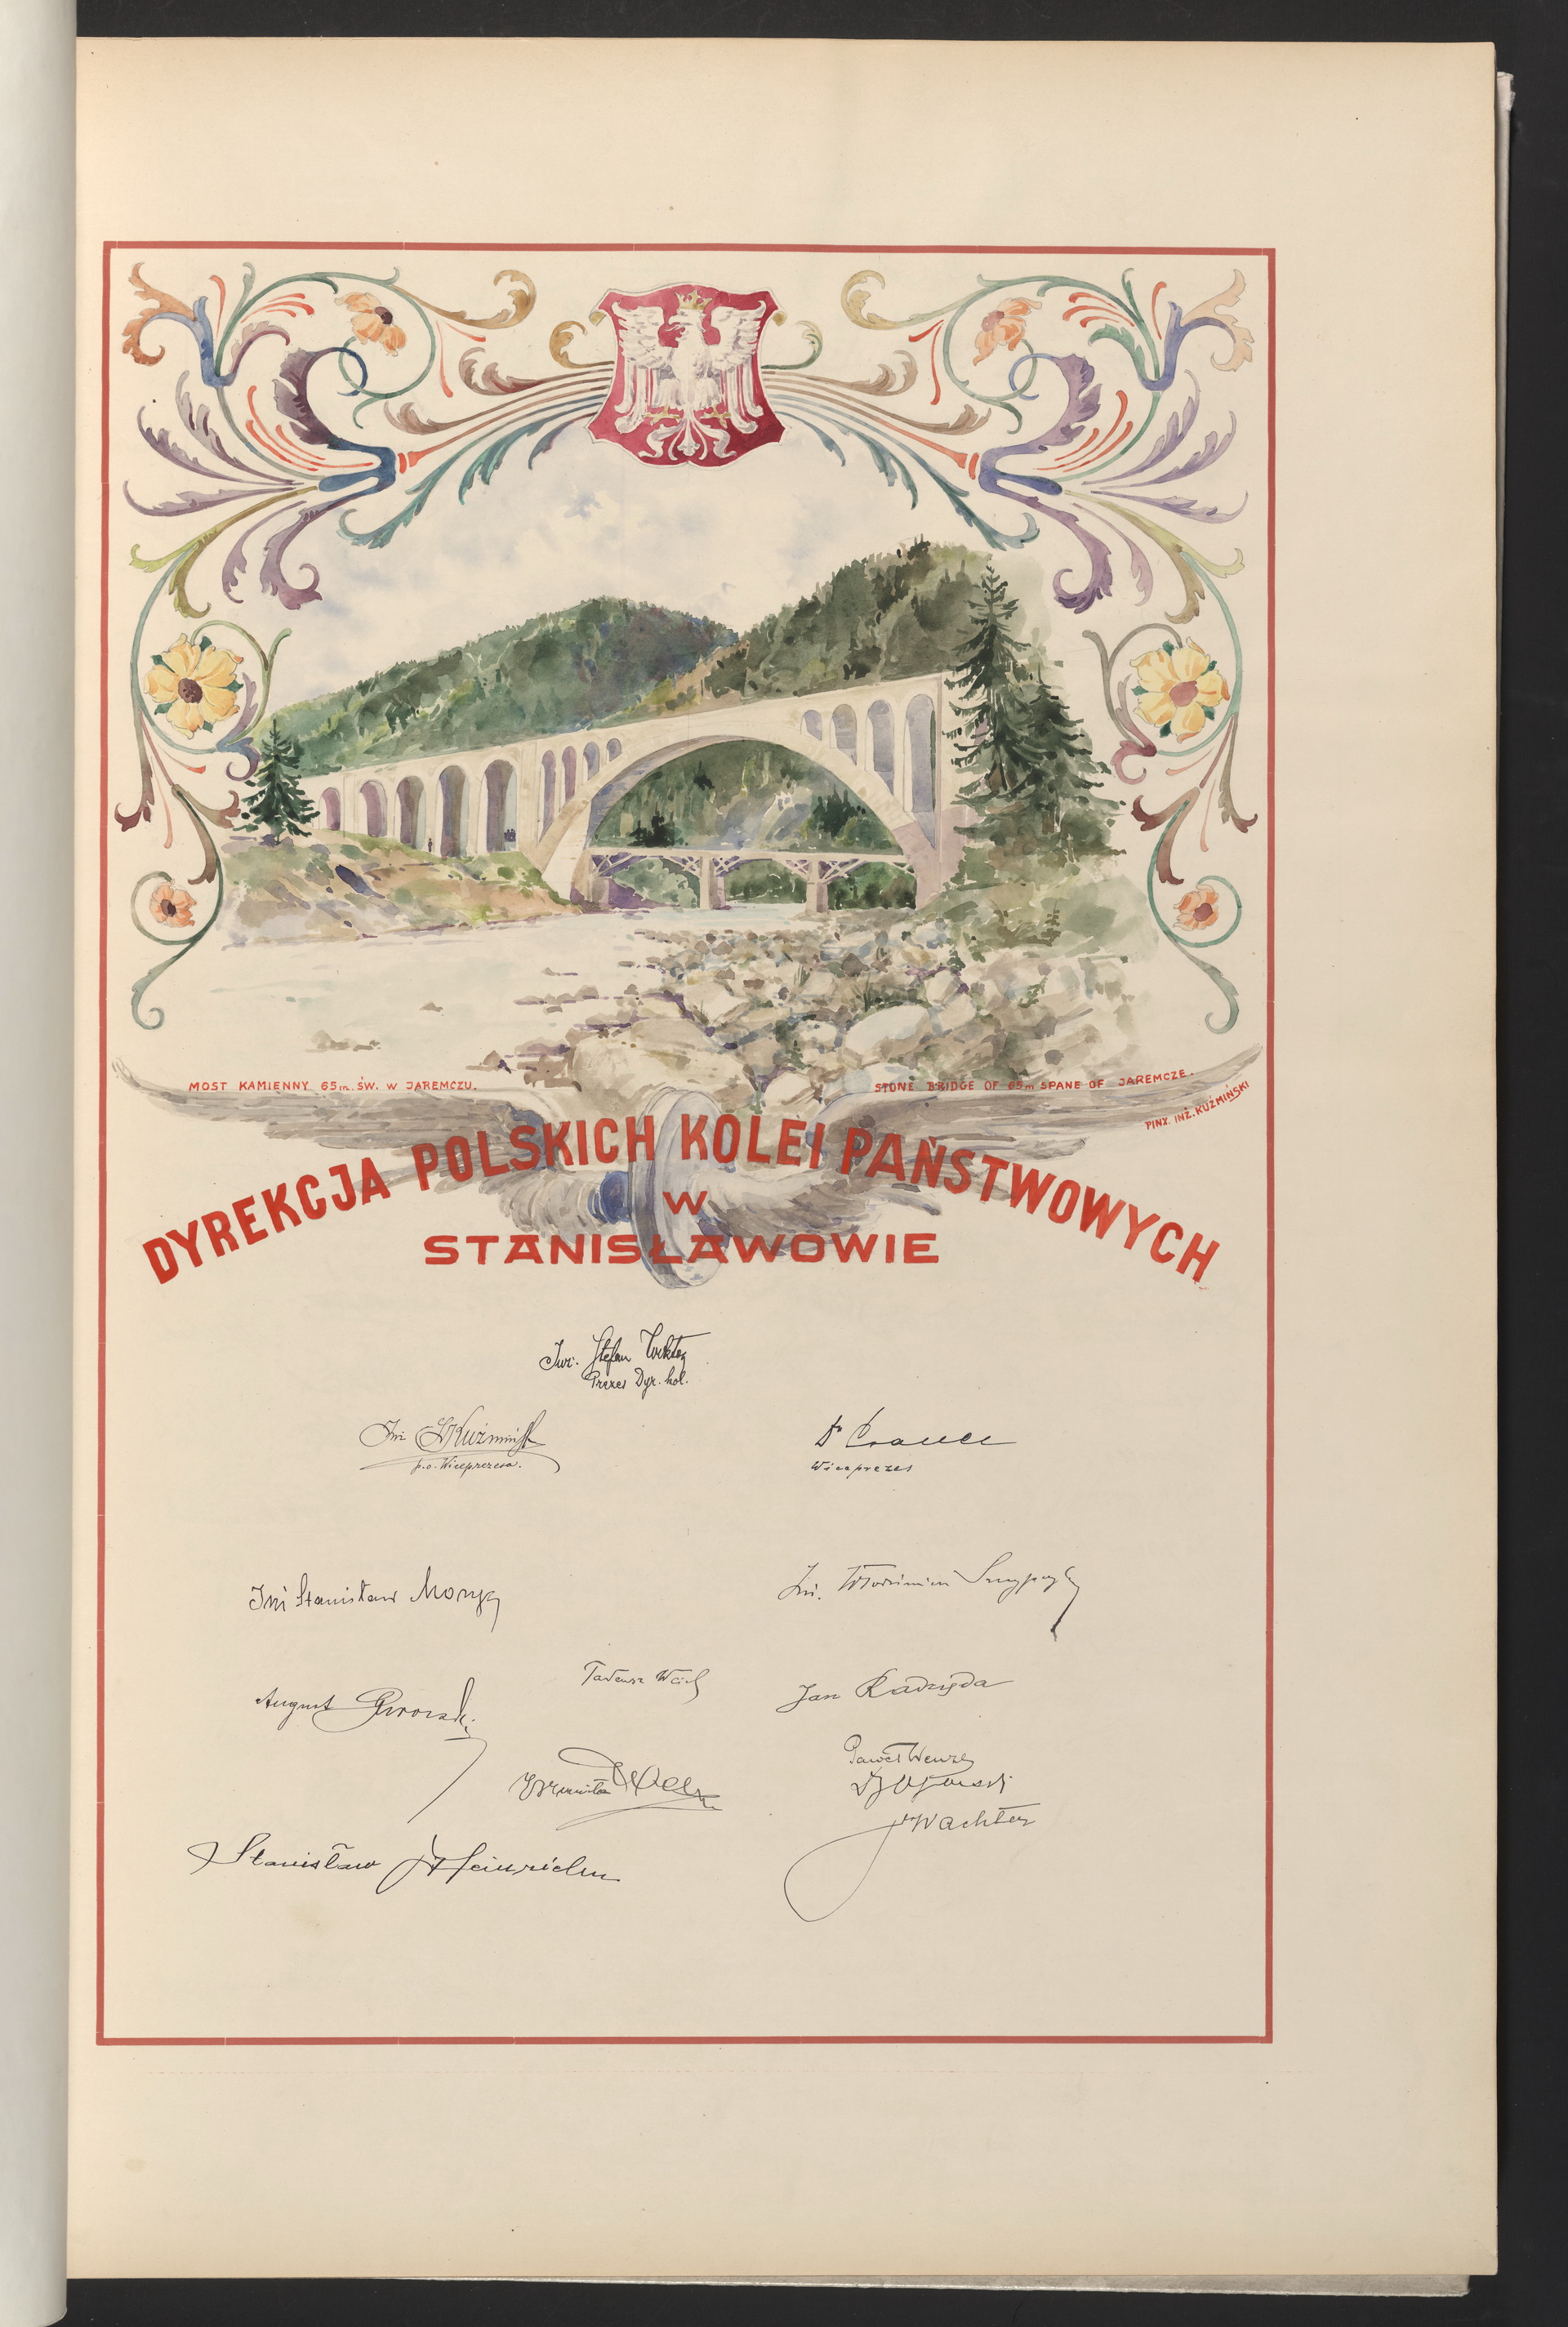 MOST KAMIENNY 65m. ŚW. W JAREMCZU.
STONE BRIDGE OF 65m SPANE OF JAREMCZE.
PINX. INŻ. KUŹMIŃSKI
DYREKCJA POLSKICH KOLEI PAŃSTWOWYCH
W
STANISŁAWOWIE
Inż. Stefan Wiktor
Prezes Dyr. kol.
Inż Kuźmiński
p.o. Wiceprezesa.
Dr
Wiceprezes
Inż Stanisław
Inż. Włodzimierz
Tadeusz
August
Jan Radzięda
Paweł
Wachter
Stanisław Heinrich